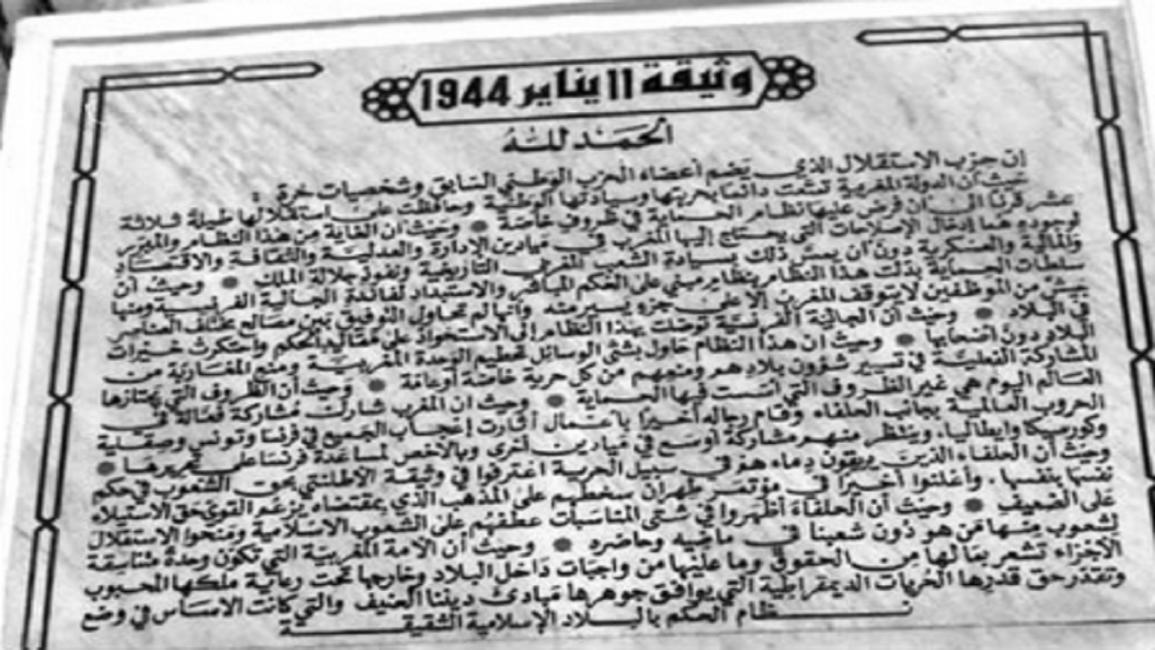 وثيقة 11 يناير 1944
الحمد لله
إن حزب الاستقلال الذي يضم أعضاء الحزب الوطني السابق وشخصيات حرة :
حيث أن الدولة المغربية تمتعت دائما بحريتها وسيادتها الوطنية وحافظت على استقلالها طيلة ثلاثة
عشر قرنا الى أن فرض عليها نظام الحماية في ظروف خاصة • وحيث ان الغاية من هذا النظام والمبرر
لوجوده هما إدخال الإصلاحات التي يحتاج إليها المغرب في ميادين الإدارة والعدلية والثقافة والاقتصاد
والمالية والعسكرية دون أن يمس ذلك بسيادة الشعب المغربي التاريخية ونفوذ جلالة الملك • وحيث أن
سلطات الحماية بدلت هذا النظام بنظام مبني على الحكم المباشر والاستبداد لفائدة الجالية الفرنسية ومنها
جيش من الموظفين لا يتوقف المغرب الا على جزء يسير منه وانها لم تحاول التوفيق بين مصالح مختلف العناصر
في البلاد • وحيث أن الجالية الفرنسية توصلت بهذا النظام إلى الاستحواذ على مقاليد الحكم واحتكرت خيرات
البلاد دون أصحابها • وحيث ان هذا النظام حاول بشتى الوسائل تحطيم الوحدة المغربية ومنع المغاربة من
المشاركة الفعلية في تسيير شؤون بلادهم ومنعهم من كل حرية خاصة أو عامة • وحيث أن الظروف التي يجتازها
العالم اليوم هي غير الظروف التي أسست فيها الحماية • وحيث ان المغرب شارك مشاركة فعالة في
الحروب العالمية بجانب الحلفاء وقام رجاله أخيرا بأعمال أثارت إعجاب الجميع في فرنسا وتونس وصقلية
وكورسيكا وإيطاليا، وينتظر منهم مشاركة أوسع في ميادين أخرى وبالأخص لمساعدة فرنسا على تحريرها •
وحيث أن الحلفاء الذين يريقون دماءهم في سبيل الحرية اعترفوا في وثيقة الأطلنتي بحق الشعوب في حكم
نفسها بنفسها، وأعلنوا أخيرا في مؤتمر طهران سخطهم على المذهب الذي بمقتضاه يزعم القوي حق الاستيلاء
على الضعيف • وحيث أن الحلفاء أظهروا في شتى المناسبات عطفهم على الشعوب الاسلامية ومنحوا الاستقلال
لشعوب منها من هو دون شعبنا في ماضيه وحاضره • وحيث أن الأمة المغربية التي تكون وحدة متناسقة
الأجزاء تشعر بما لها من الحقوق وما عليها من واجبات داخل البلاد وخارجها تحت رعاية ملكها المحبوب
وتقدر حق قدرها الحريات الديمقراطية التي يوافق جوهرها مبادئ ديننا الحنيف والتي كانت الأساس في وضع
نظام الحكم بالبلاد الإسلامية الشقيقة